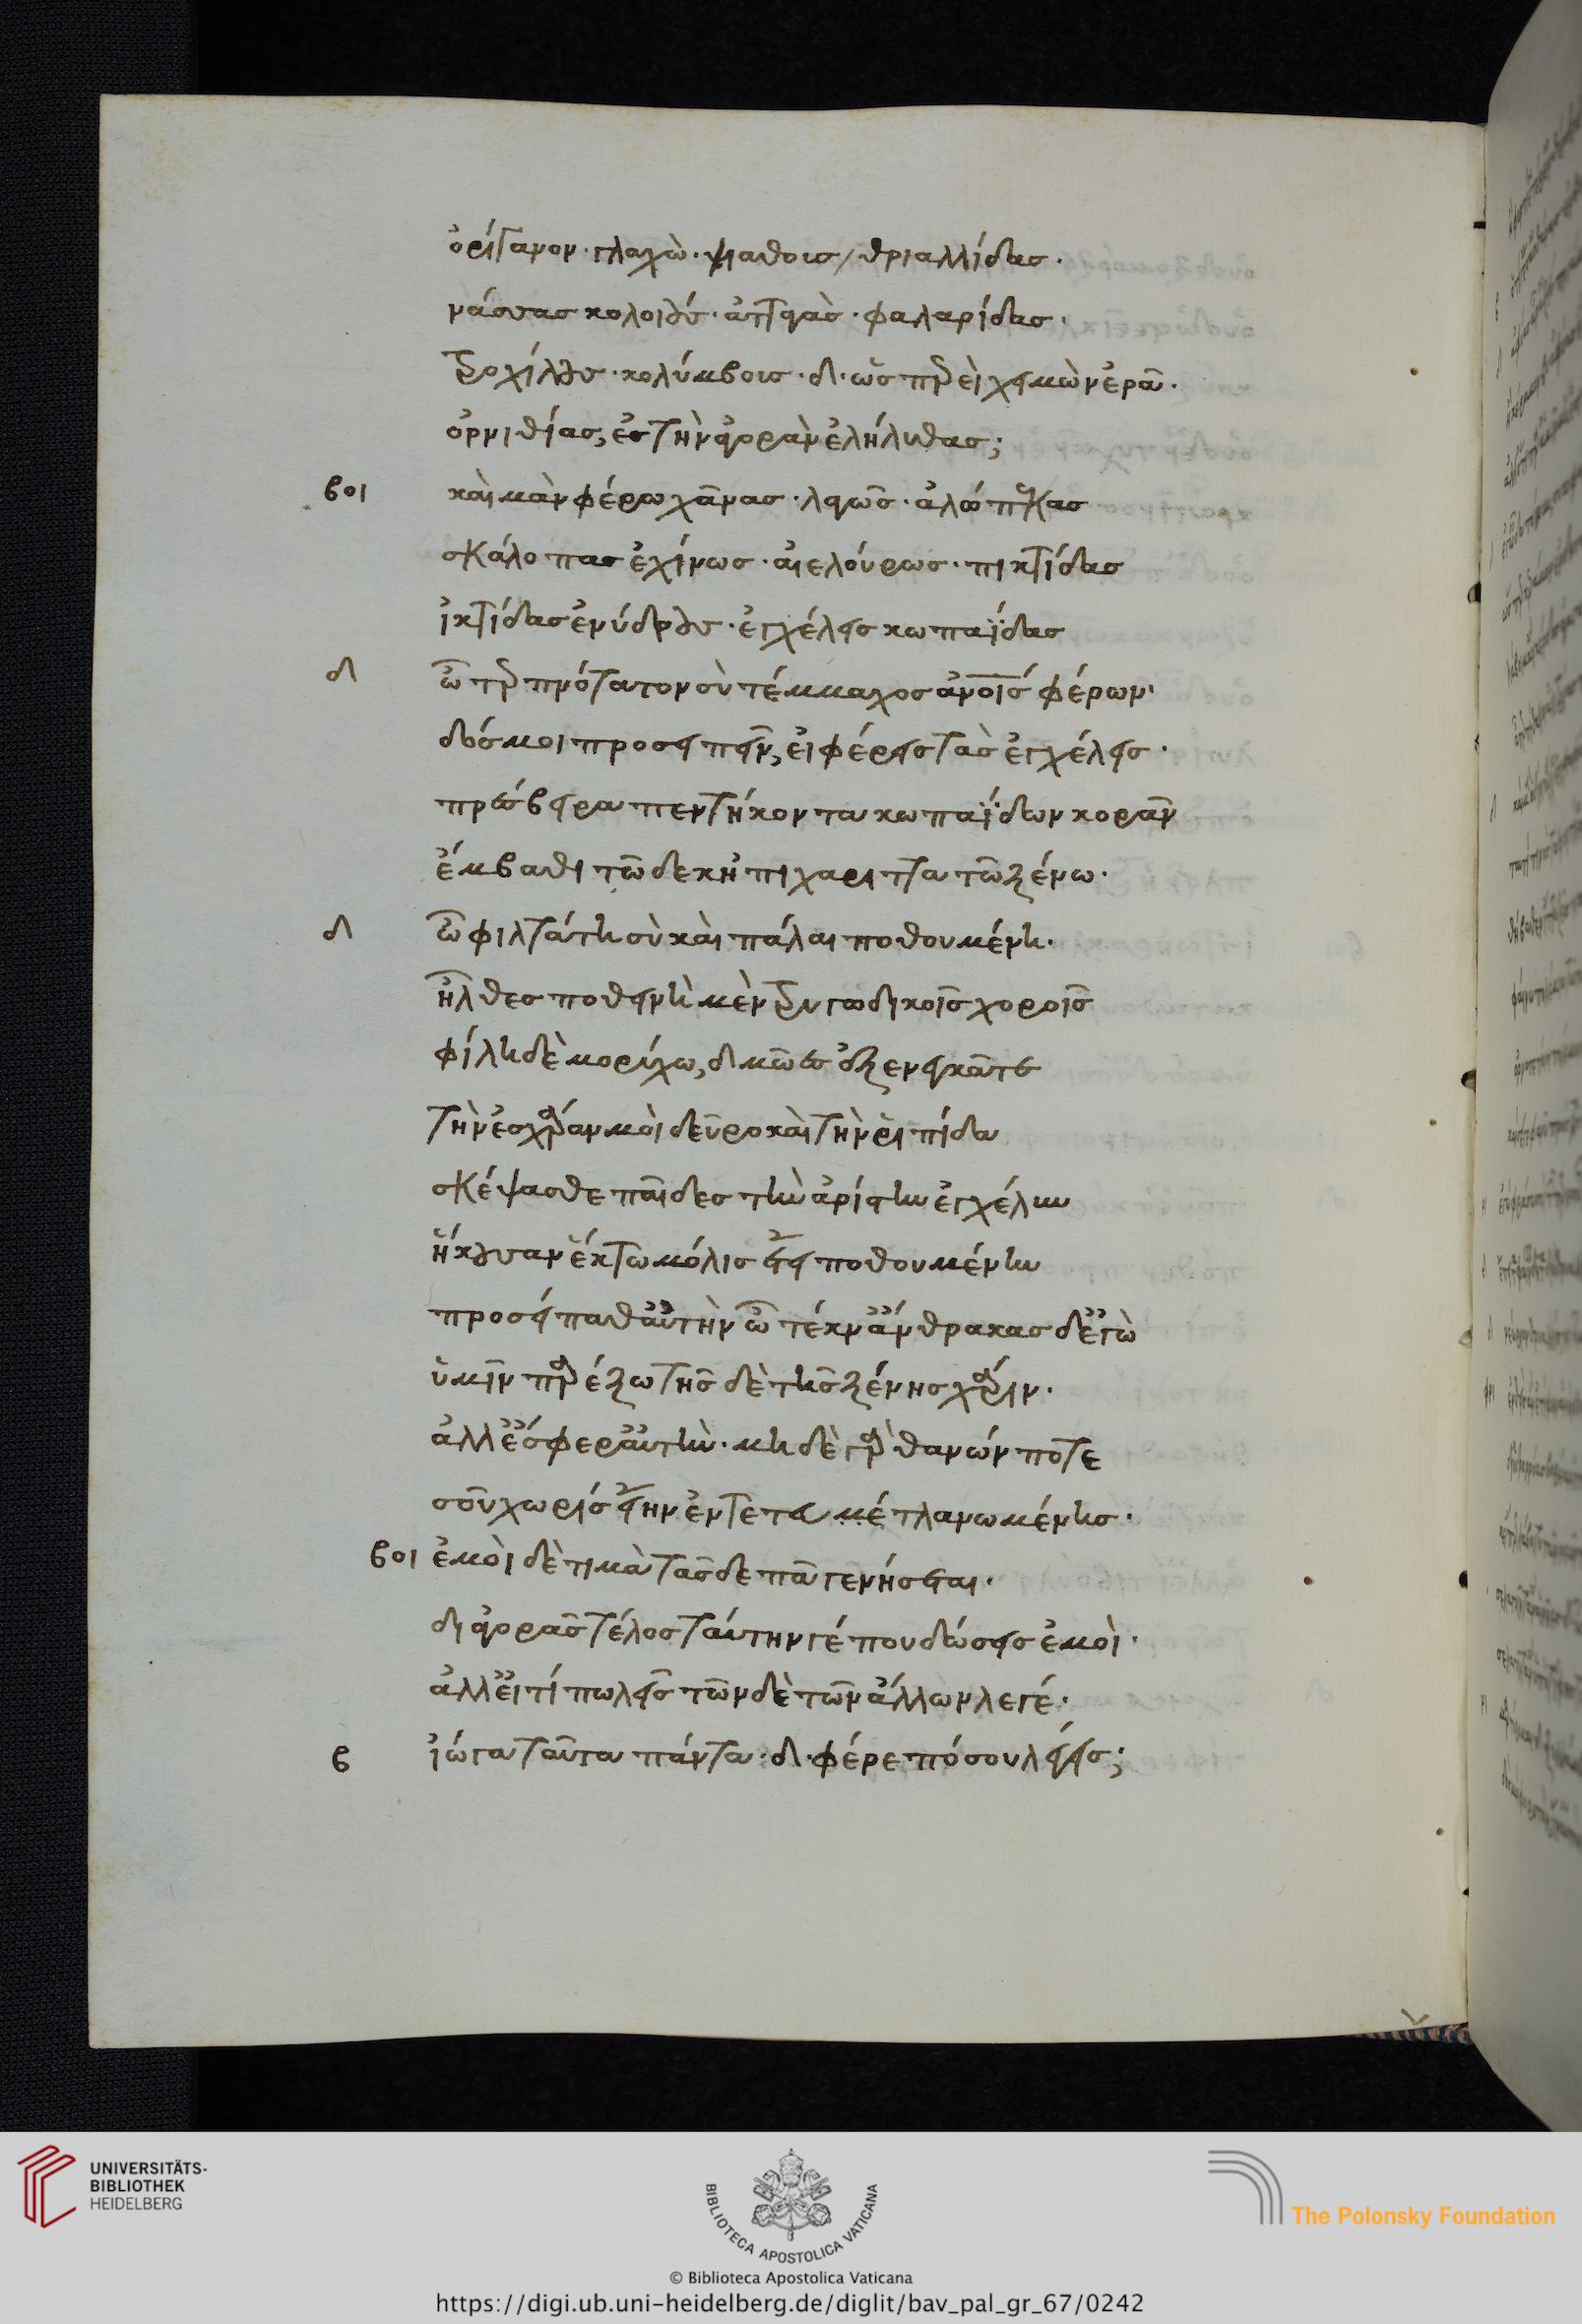 ὀρίγανον· γλαχὼ· ψιάθους, θρυαλλίδας·
νάσσας κολοιοὺς· ἀτταγᾶς· φαλαρίδας·
τροχίλους· κολύμβους· δι· ὡσπερεὶ χειμὼν ἐρᾶ·
ὀρνιθίας, ἐς τὴν ἀγορὰν ἐλήλυθας;
βοι καὶ μὰν φέρω χᾶνας· λαγῶς· ἀλώπεκας
σκάλοπας ἐχίνως· αἰελούρως· πικτίδας
ἰκτίδας ἐνύδρους· ἐγχέλεις κωπαΐδας
δι ὦ τερπνότατον σὺ τέμμαχος ἀνοῖσ φέρων·
δός μοι προσειπεῖν, εἰ φέρεις τὰς ἐγχέλεις·
πρέσβειρα πεντήκοντα κωπαΐδων κορᾶν
ἔμβαθι τῶδε κἠπιχαριττα τῶ ξένω·
δι ὦ φιλτάτη σὺ καὶ πάλαι ποθουμένη·
ἦλθες ποθεινὴ μὲν τρυγωδικοῖς χοροῖς
φίλη δὲ μορύχω, δμῶες ἐξενείκατε
τὴν ἐσχάραν μοὶ δεῦρο καὶ τὴν ῥιπίδα
σκέψασθε παῖδες τὴν ἀρίστην ἐγχέλην
ἥκουσαν ἕκτω μόλις ἔτει ποθουμένην
προσείπαθ' αὐτὴν ὦ τέκν' ἄνθρακας δ' ἐγὼ
ὑμῖν παρέξω τῆσδε τῆς ξένης χάριν·
ἀλλ' ἔσφερ' αὐτὴν· μηδὲ γὰρ θανών ποτε
σοῦ χωρὶς εἴην ἐντετευτλανωμένης·
βοι ἐμοὶ δὲ τιμὰ τᾶσδε πᾶ γενήσεται·
δι ἀγορᾶς τέλος ταύτην γέ που δώσεις ἐμοὶ·
ἀλλ' εἴ τι πωλεῖς τῶνδε τῶν ἄλλων λεγέ·
β ἰώγα ταῦτα πάντα· δι· φέρε πόσου λέγεις;
UNIVERSITÄTS-
BIBLIOTHEK
HEIDELBERG
BIBLIOTECA APOSTOLICA VATICANA
The Polonsky Foundation
© Biblioteca Apostolica Vaticana
https://digi.ub.uni-heidelberg.de/diglit/bav_pal_gr_67/0242